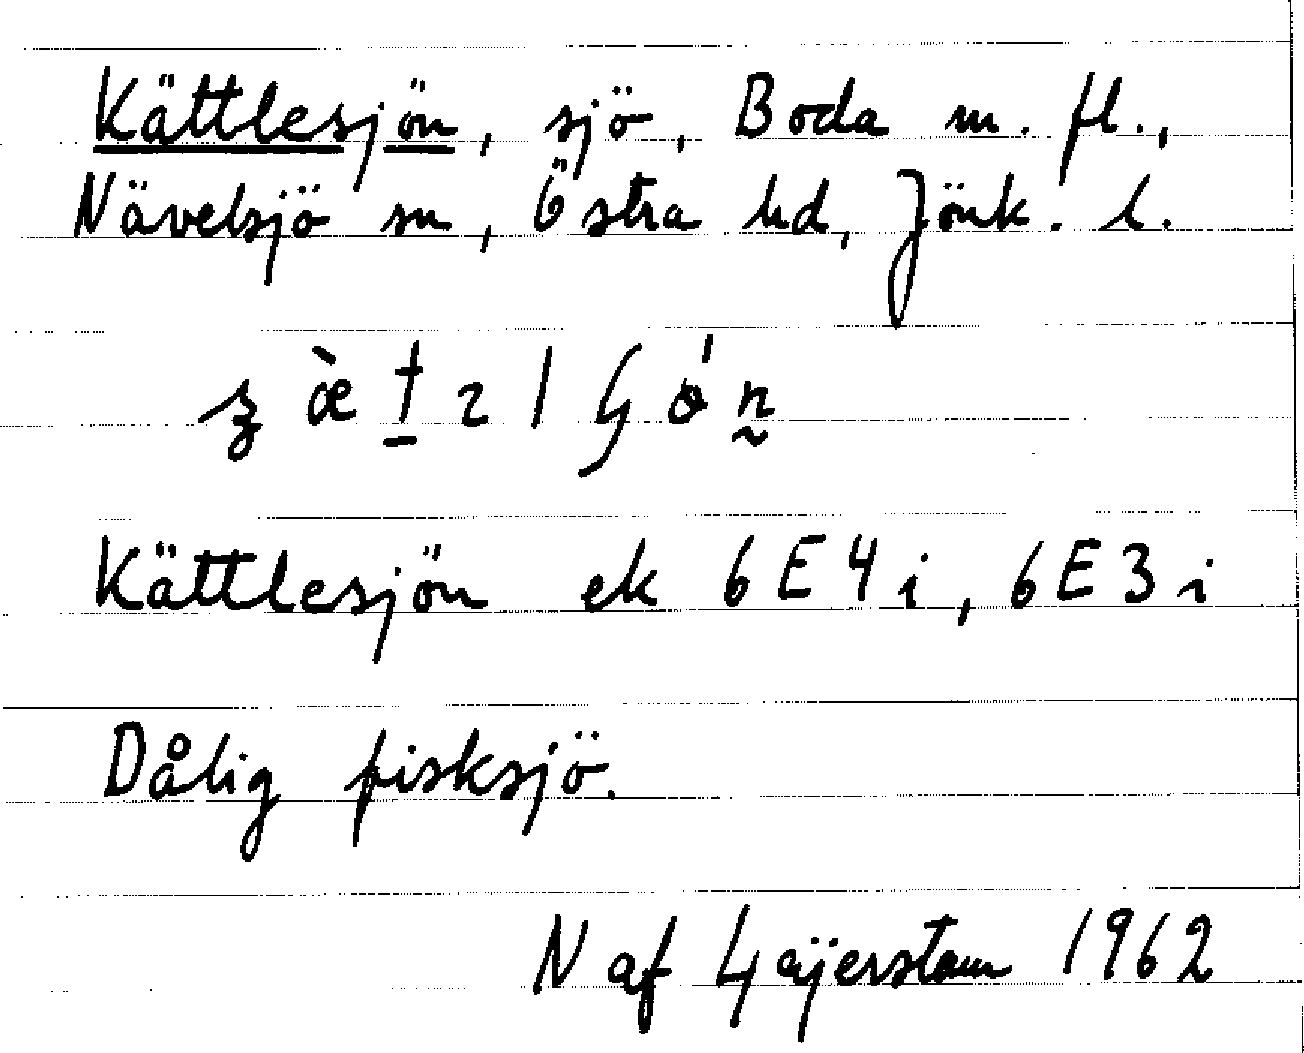 Kättlesjön, sjö, Boda m. fl.,
Nävelsjö sn, Östra hd, Jönk. l.
Kättlesjön ek 6E4i, 6E3i
Dålig fisksjö.
N af Geijerstam 1962